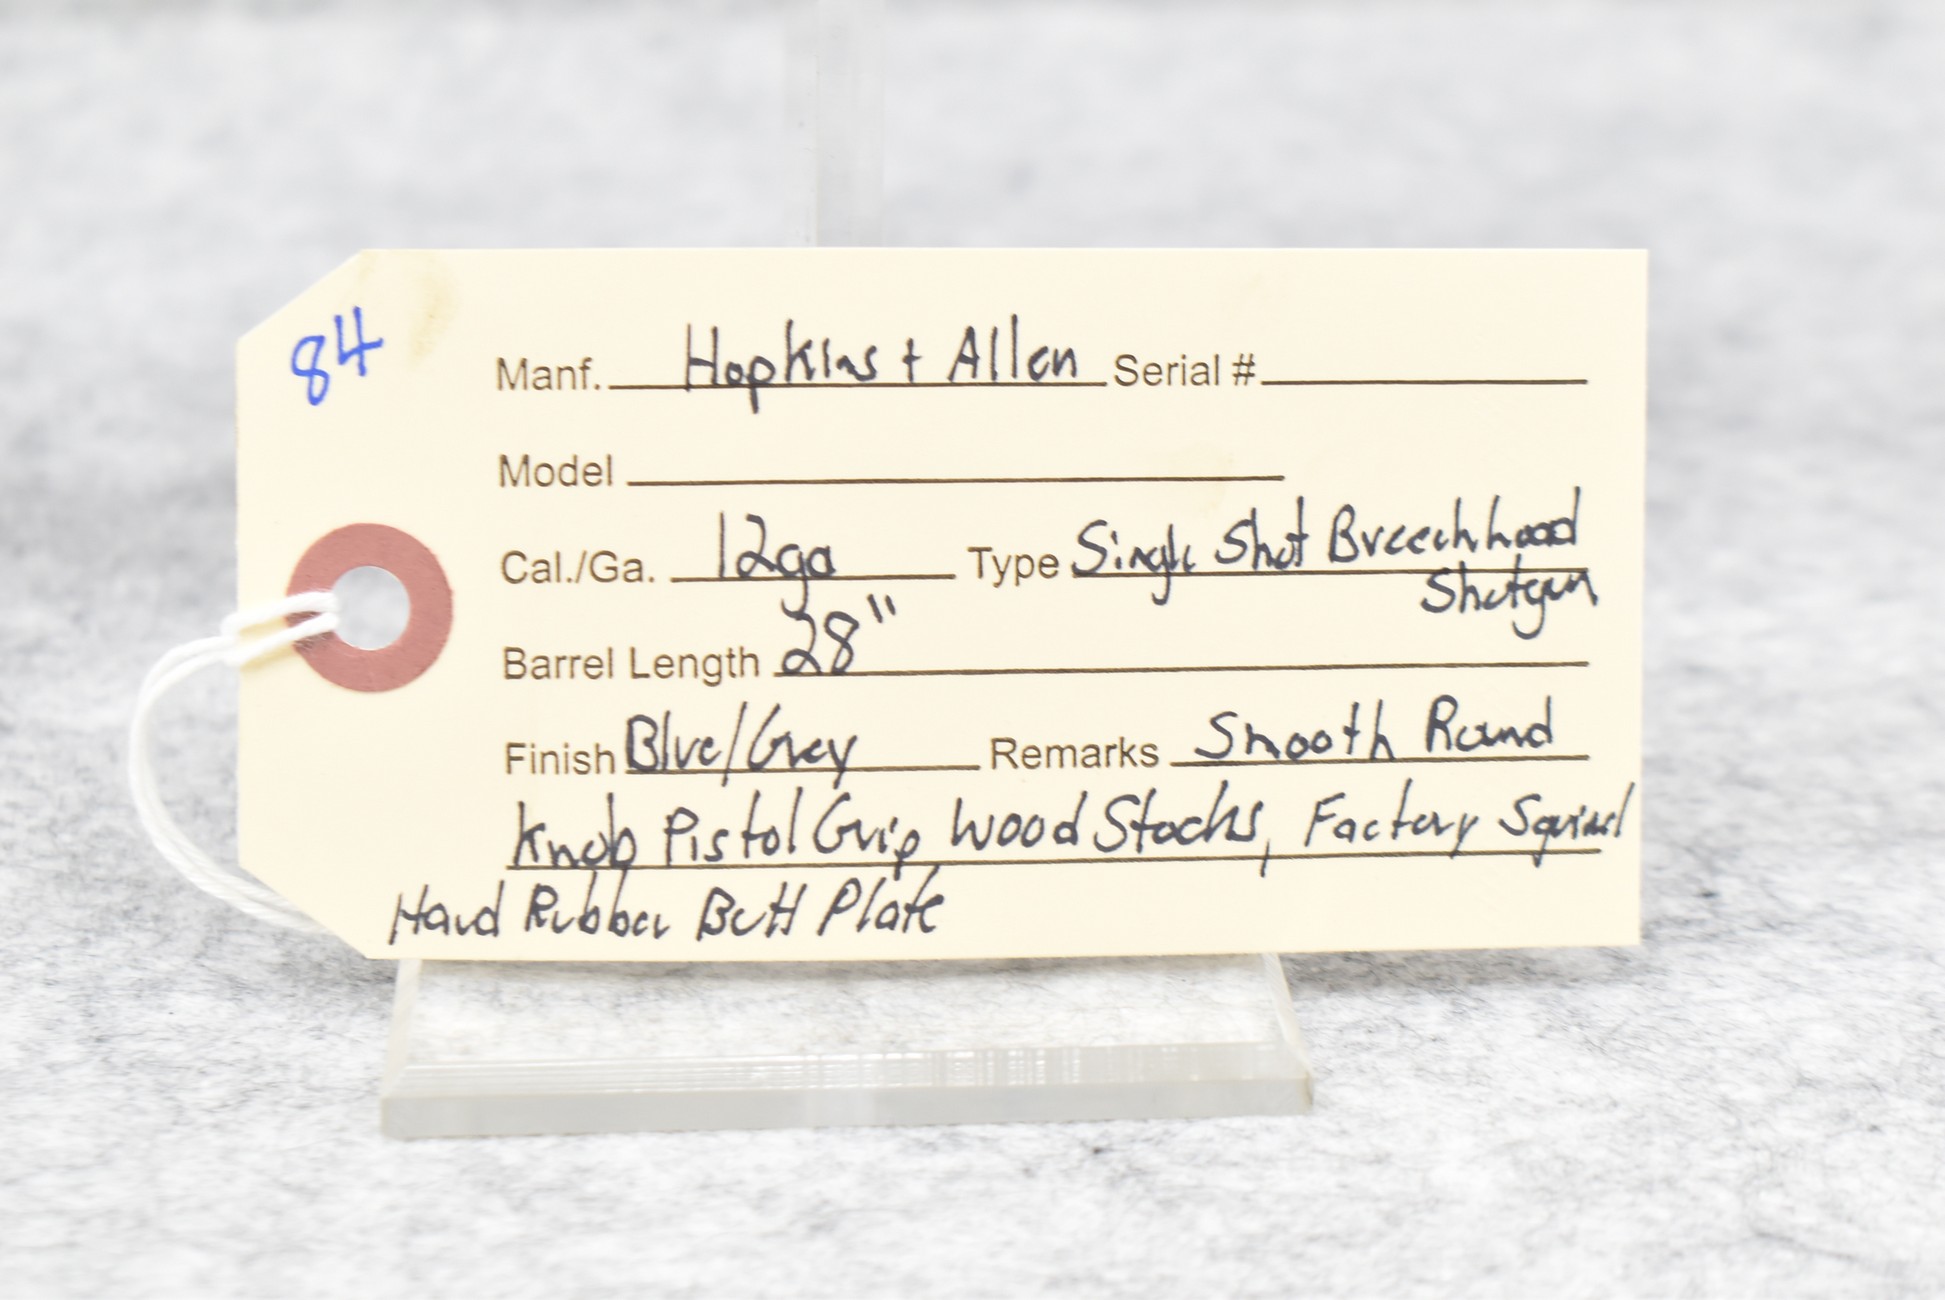 84
Manf. Hopkins + Allen Serial #
Model
Cal./Ga. 12ga Type Single Shot Breechload
Shotgun
Barrel Length 28"
Finish Blue/Grey Remarks Smooth Round
Knob Pistol Grip Wood Stocks, Factory Squirrel
Hard Rubber Butt Plate